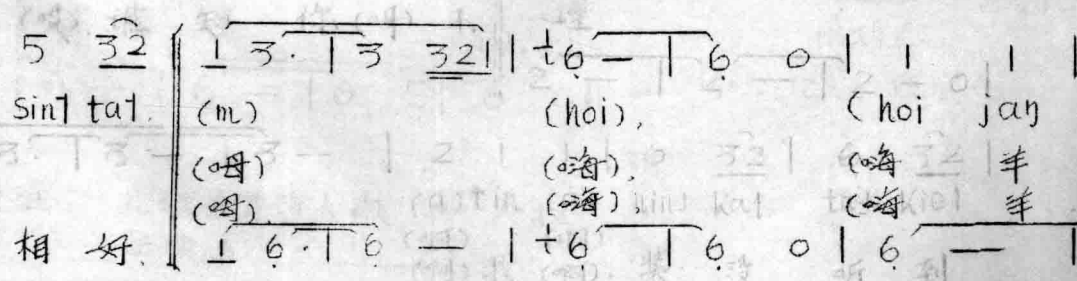 5 32 ‖ 1 3· | 3 321 | ⸠6 — | 6 0 | 1 1 | 1 |
sin˥ ta˥. (m) (hoi), (hoi jaŋ
(嗨), (嗨 羊
(嗨), (嗨 羊
相 好. 1 6· | 6 — | 6 — | 6 0 | 6 — |